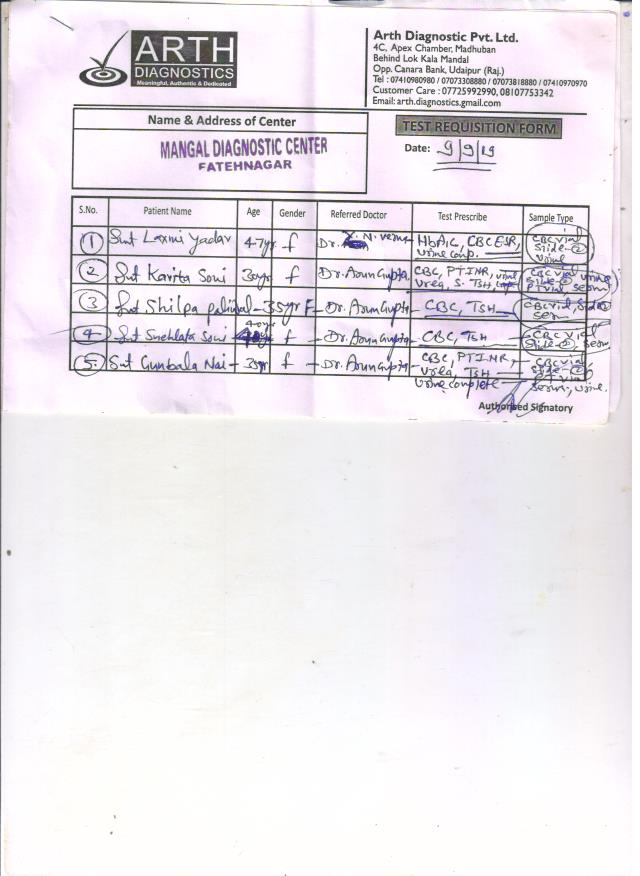 ARTH
DIAGNOSTICS
Meaningful, Authentic & Dedicated
Arth Diagnostic Pvt. Ltd.
4C, Apex Chamber, Madhuban
Behind Lok Kala Mandal
Opp. Canara Bank, Udaipur (Raj.)
Tel : 07410980980 / 07073308880 / 07073818880 / 07410970970
Customer Care : 07725992990, 08107753342
Email: arth.diagnostics.gmail.com
Name & Address of Center
MANGAL DIAGNOSTIC CENTER
FATEHNAGAR
TEST REQUISITION FORM
Date: 9/9/19
S.No. Patient Name Age Gender Referred Doctor Test Prescribe Sample Type
1 Smt Laxmi Yadav 47yr f Dr. N. Verma HbA1C, CBC ESR, CBC vial
Urine comp. Slide-2
Urine
2 Smt Kavita Soni 30yr f Dr. Arun Gupta CBC, PTINR, urine CBC vial urine
Urea, S. TSH, comp Slide-2
PT vial, serum
3 Smt Shilpa paliwal - 35yr F - Dr. Arun Gupta - CBC, TSH CBC vial, Slide
serum
4 Smt Snehlata Soni 40yr f - Dr. Arun Gupta - CBC, TSH CBC vial
Slide-2, serum
5 Smt Gunbala Nai - 35yr f - Dr. Arun Gupta - CBC, PTINR CBC vial,
Urea, TSH Slide-2
Urine complete PT vial
serum, urine.
Authorised Signatory